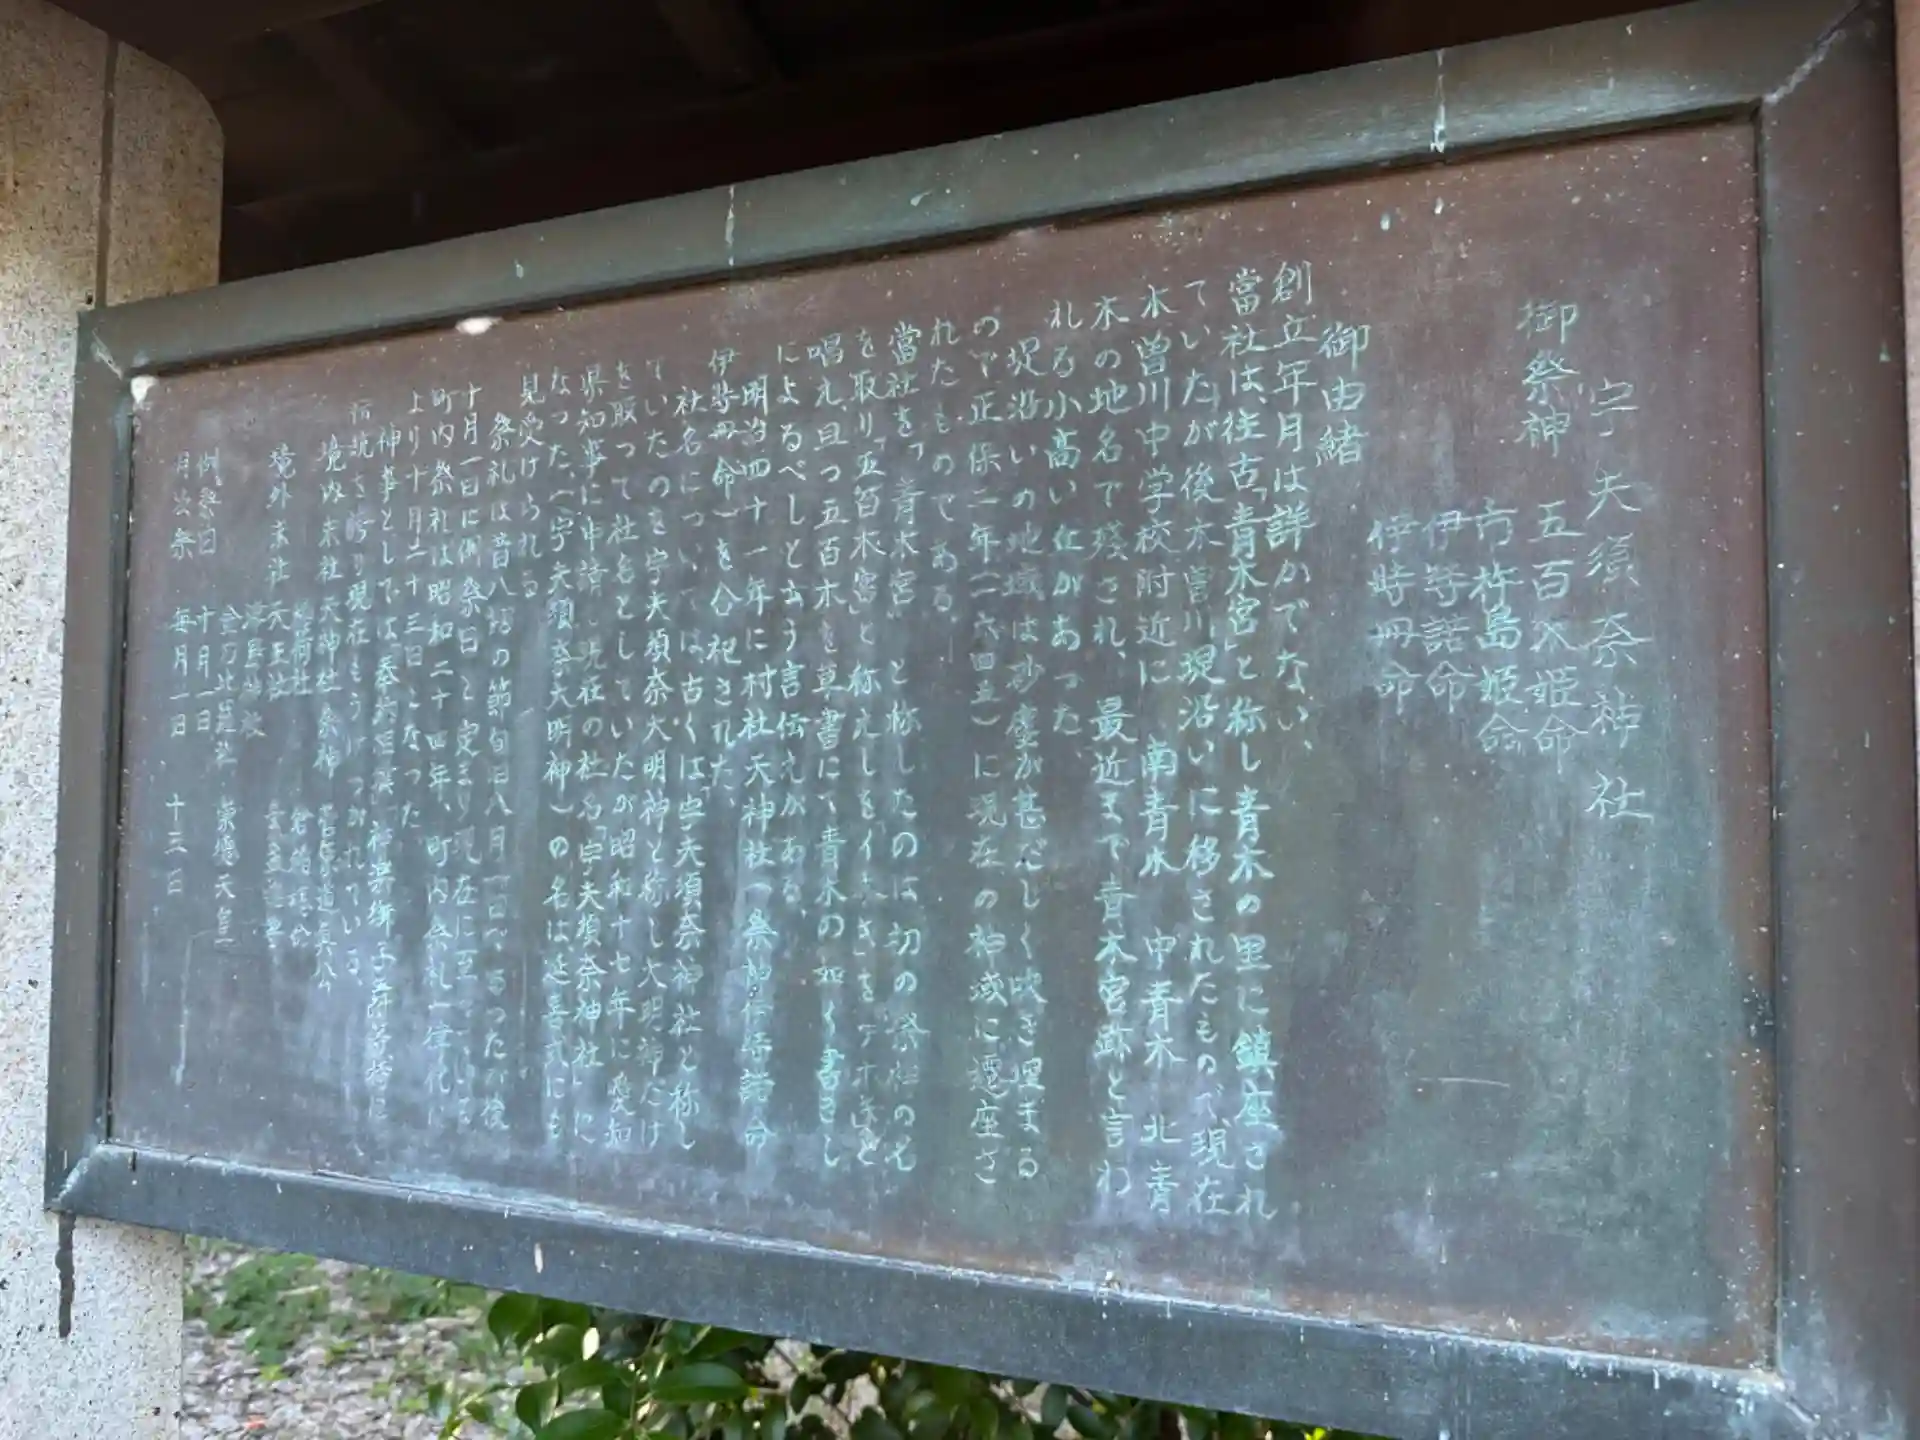 宇夫須奈神社
御祭神　五百木姫命
市杵島姫命
伊弉諾命
伊弉冊命
御由緒
創立年月は詳かでない、
當社は、往古「青木宮」と称し青木の里に鎮座され
ていたが後木曽川現沿いに移されたもので、現在
木曽川中学校附近に　南青木　中青木　北青
木の地名で残され、最近まで青木宮跡と言わ
れる小高い丘があった、
堤沿いの地域は砂塵が甚だしく吹き埋まる
ので正保二年(一六四五)に現在の神域に遷座さ
れたものである。
當社を「青木宮」と称したのは初の祭神の名
を取り「五百木宮」と称えしをイホキをアオキと
唱え、且つ五百木を草書にて青木の如く書きし
によるべしと云う言伝えがある、
明治四十一年に村社天神社(祭神伊弉諾命
伊弉冊命)を合祀された、
社名については、古くは「宇夫須奈神社と称し
ていたのを宇夫須奈大明神と称し大明神だけ
を取って社名としていたが昭和十七年に愛知
県知事に申請し現在の社名「宇夫須奈神社」に
なった、(宇夫須奈大明神)の名は延喜式にも
見受けられる
祭礼は昔八朔の節旬旧八月一日であったが後
十月一日に例祭日と定まり現在に至っている
町内祭礼は昭和二十四年、町内祭礼一律化に
より十月二十三日となった
神事としては「奉納
現在もうけつがれている、
境内末社　天神社　祭神　菅原道真公
稲荷社
津島神社
境外末社　天王社
金刀比羅社　崇徳天皇
例祭日　十月一日
月次祭　毎月一日　十三日